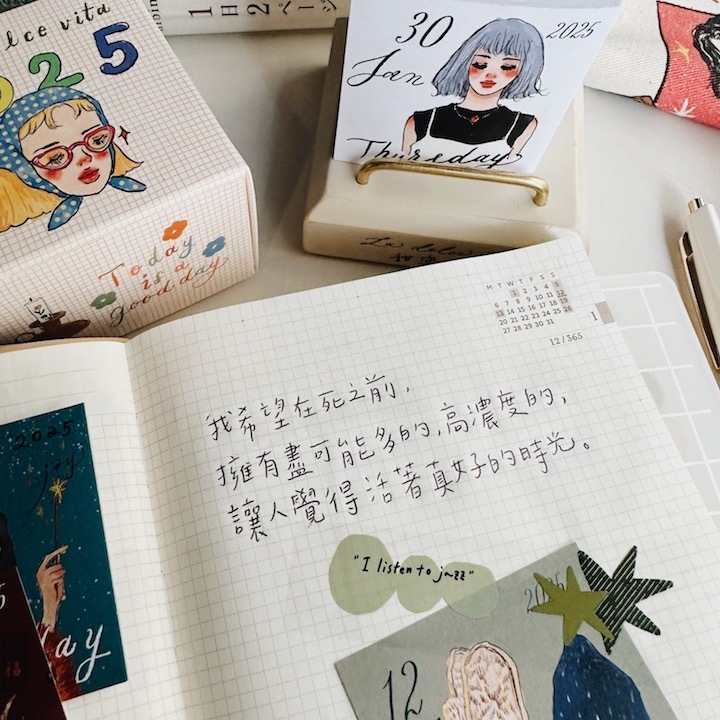 lce vita
025
Today
is a
good day
1日2ページ
30
Jan
2025
Thursday
La dolce
M T W T F S S
1 2 3 4 5
6 7 8 9 10 11 12
13 14 15 16 17 18 19
20 21 22 23 24 25 26
27 28 29 30 31
1
12/365
我希望在死之前，
擁有盡可能多的，高濃度的，
讓人覺得活著真好的時光。
"I listen to jazz"
2025
joy
day
2025
12